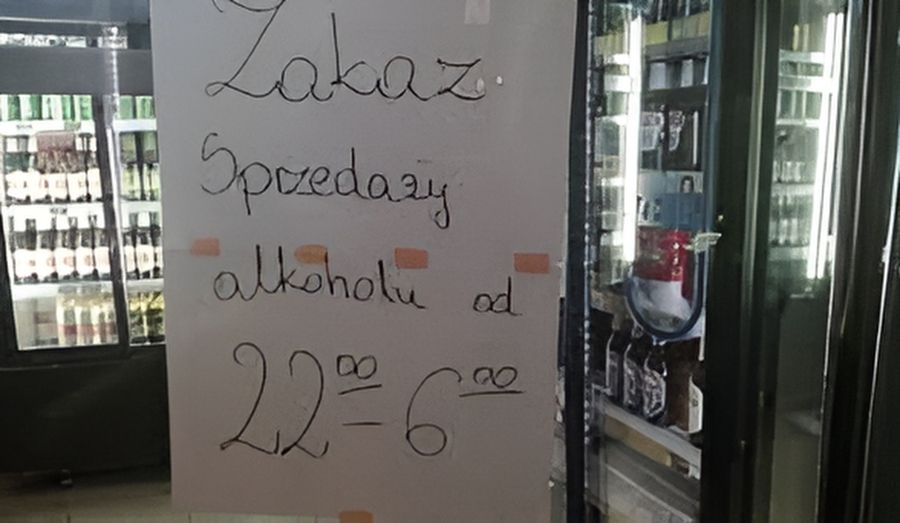 Zakaz
Sprzedaży
alkoholu od
22⁰⁰ – 6⁰⁰